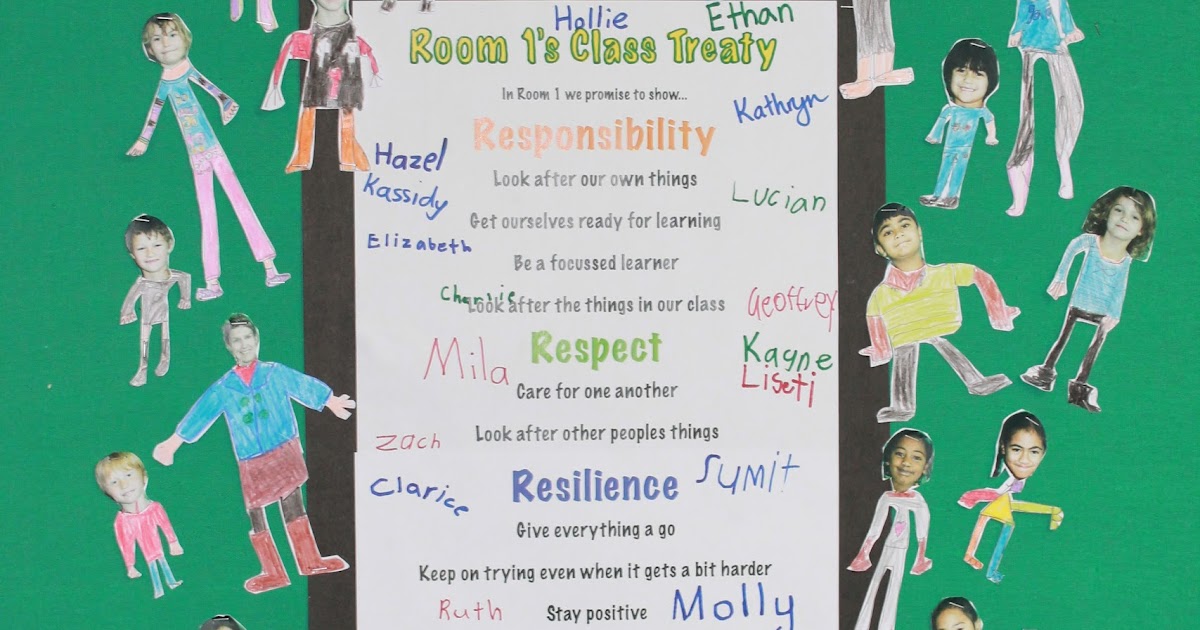 Hollie
Ethan
Room 1's Class Treaty
In Room 1 we promise to show...
Kathryn
Responsibility
Hazel
Look after our own things
Kassidy
Lucian
Get ourselves ready for learning
Elizabeth
Be a focussed learner
Charlie
Look after the things in our class
Geoffrey
Mila
Respect
Kayne
Liseti
Care for one another
Zach
Look after other peoples things
Clarice
Resilience
Sumit
Give everything a go
Keep on trying even when it gets a bit harder
Ruth
Stay positive
Molly